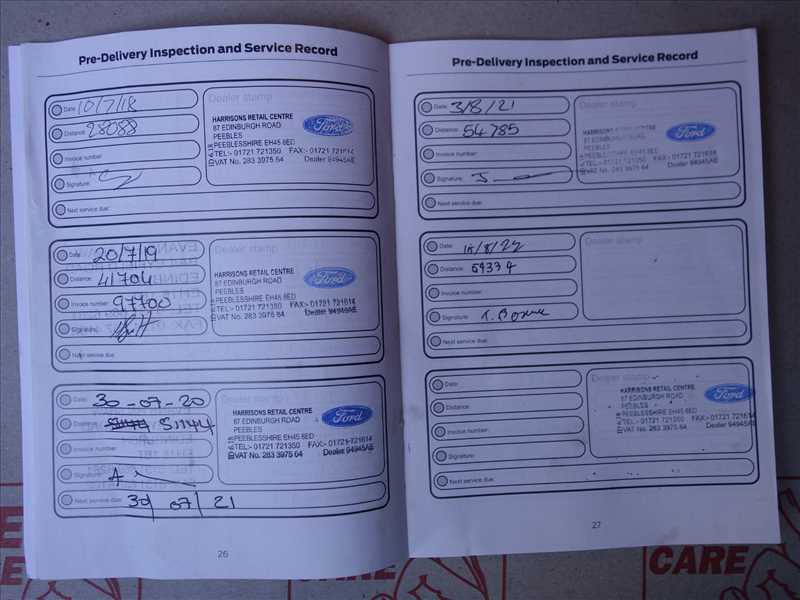 Pre-Delivery Inspection and Service Record
Date: 10/7/18
Distance: 28088
Invoice number:
Signature:
Next service due:
Dealer stamp
HARRISONS RETAIL CENTRE
87 EDINBURGH ROAD
PEEBLES
PEEBLESSHIRE EH45 8ED
TEL:- 01721 721350 FAX:- 01721 721614
VAT No. 283 3975 64 Dealer 94945AE
Ford
Date: 20/7/19
Distance: 41704
Invoice number: 97700
Signature:
Next service due:
Dealer stamp
HARRISONS RETAIL CENTRE
87 EDINBURGH ROAD
PEEBLES
PEEBLESSHIRE EH45 8ED
TEL:- 01721 721350 FAX:- 01721 721614
VAT No. 283 3975 64 Dealer 94945AE
Ford
Date: 30-07-20
Distance: 51144
Invoice number:
Signature:
Next service due: 30/07/21
Dealer stamp
HARRISONS RETAIL CENTRE
87 EDINBURGH ROAD
PEEBLES
PEEBLESSHIRE EH45 8ED
TEL:- 01721 721350 FAX:- 01721 721614
VAT No. 283 3975 64 Dealer 94945AE
Ford
26
Pre-Delivery Inspection and Service Record
Date: 3/8/21
Distance: 54785
Invoice number:
Signature: J
Next service due:
Dealer stamp
HARRISONS RETAIL CENTRE
87 EDINBURGH ROAD
PEEBLES
PEEBLESSHIRE EH45 8ED
TEL:- 01721 721350 FAX:- 01721 721614
VAT No. 283 3975 64 Dealer 94945AE
Ford
Date:
Distance: 59334
Invoice number:
Signature:
Next service due:
Dealer stamp
Date:
Distance:
Invoice number:
Signature:
Next service due:
Dealer stamp
HARRISONS RETAIL CENTRE
87 EDINBURGH ROAD
PEEBLES
PEEBLESSHIRE EH45 8ED
TEL:- 01721 721350 FAX:- 01721 721614
VAT No. 283 3975 64 Dealer 94945AE
Ford
27
CARE
CARE
CARE